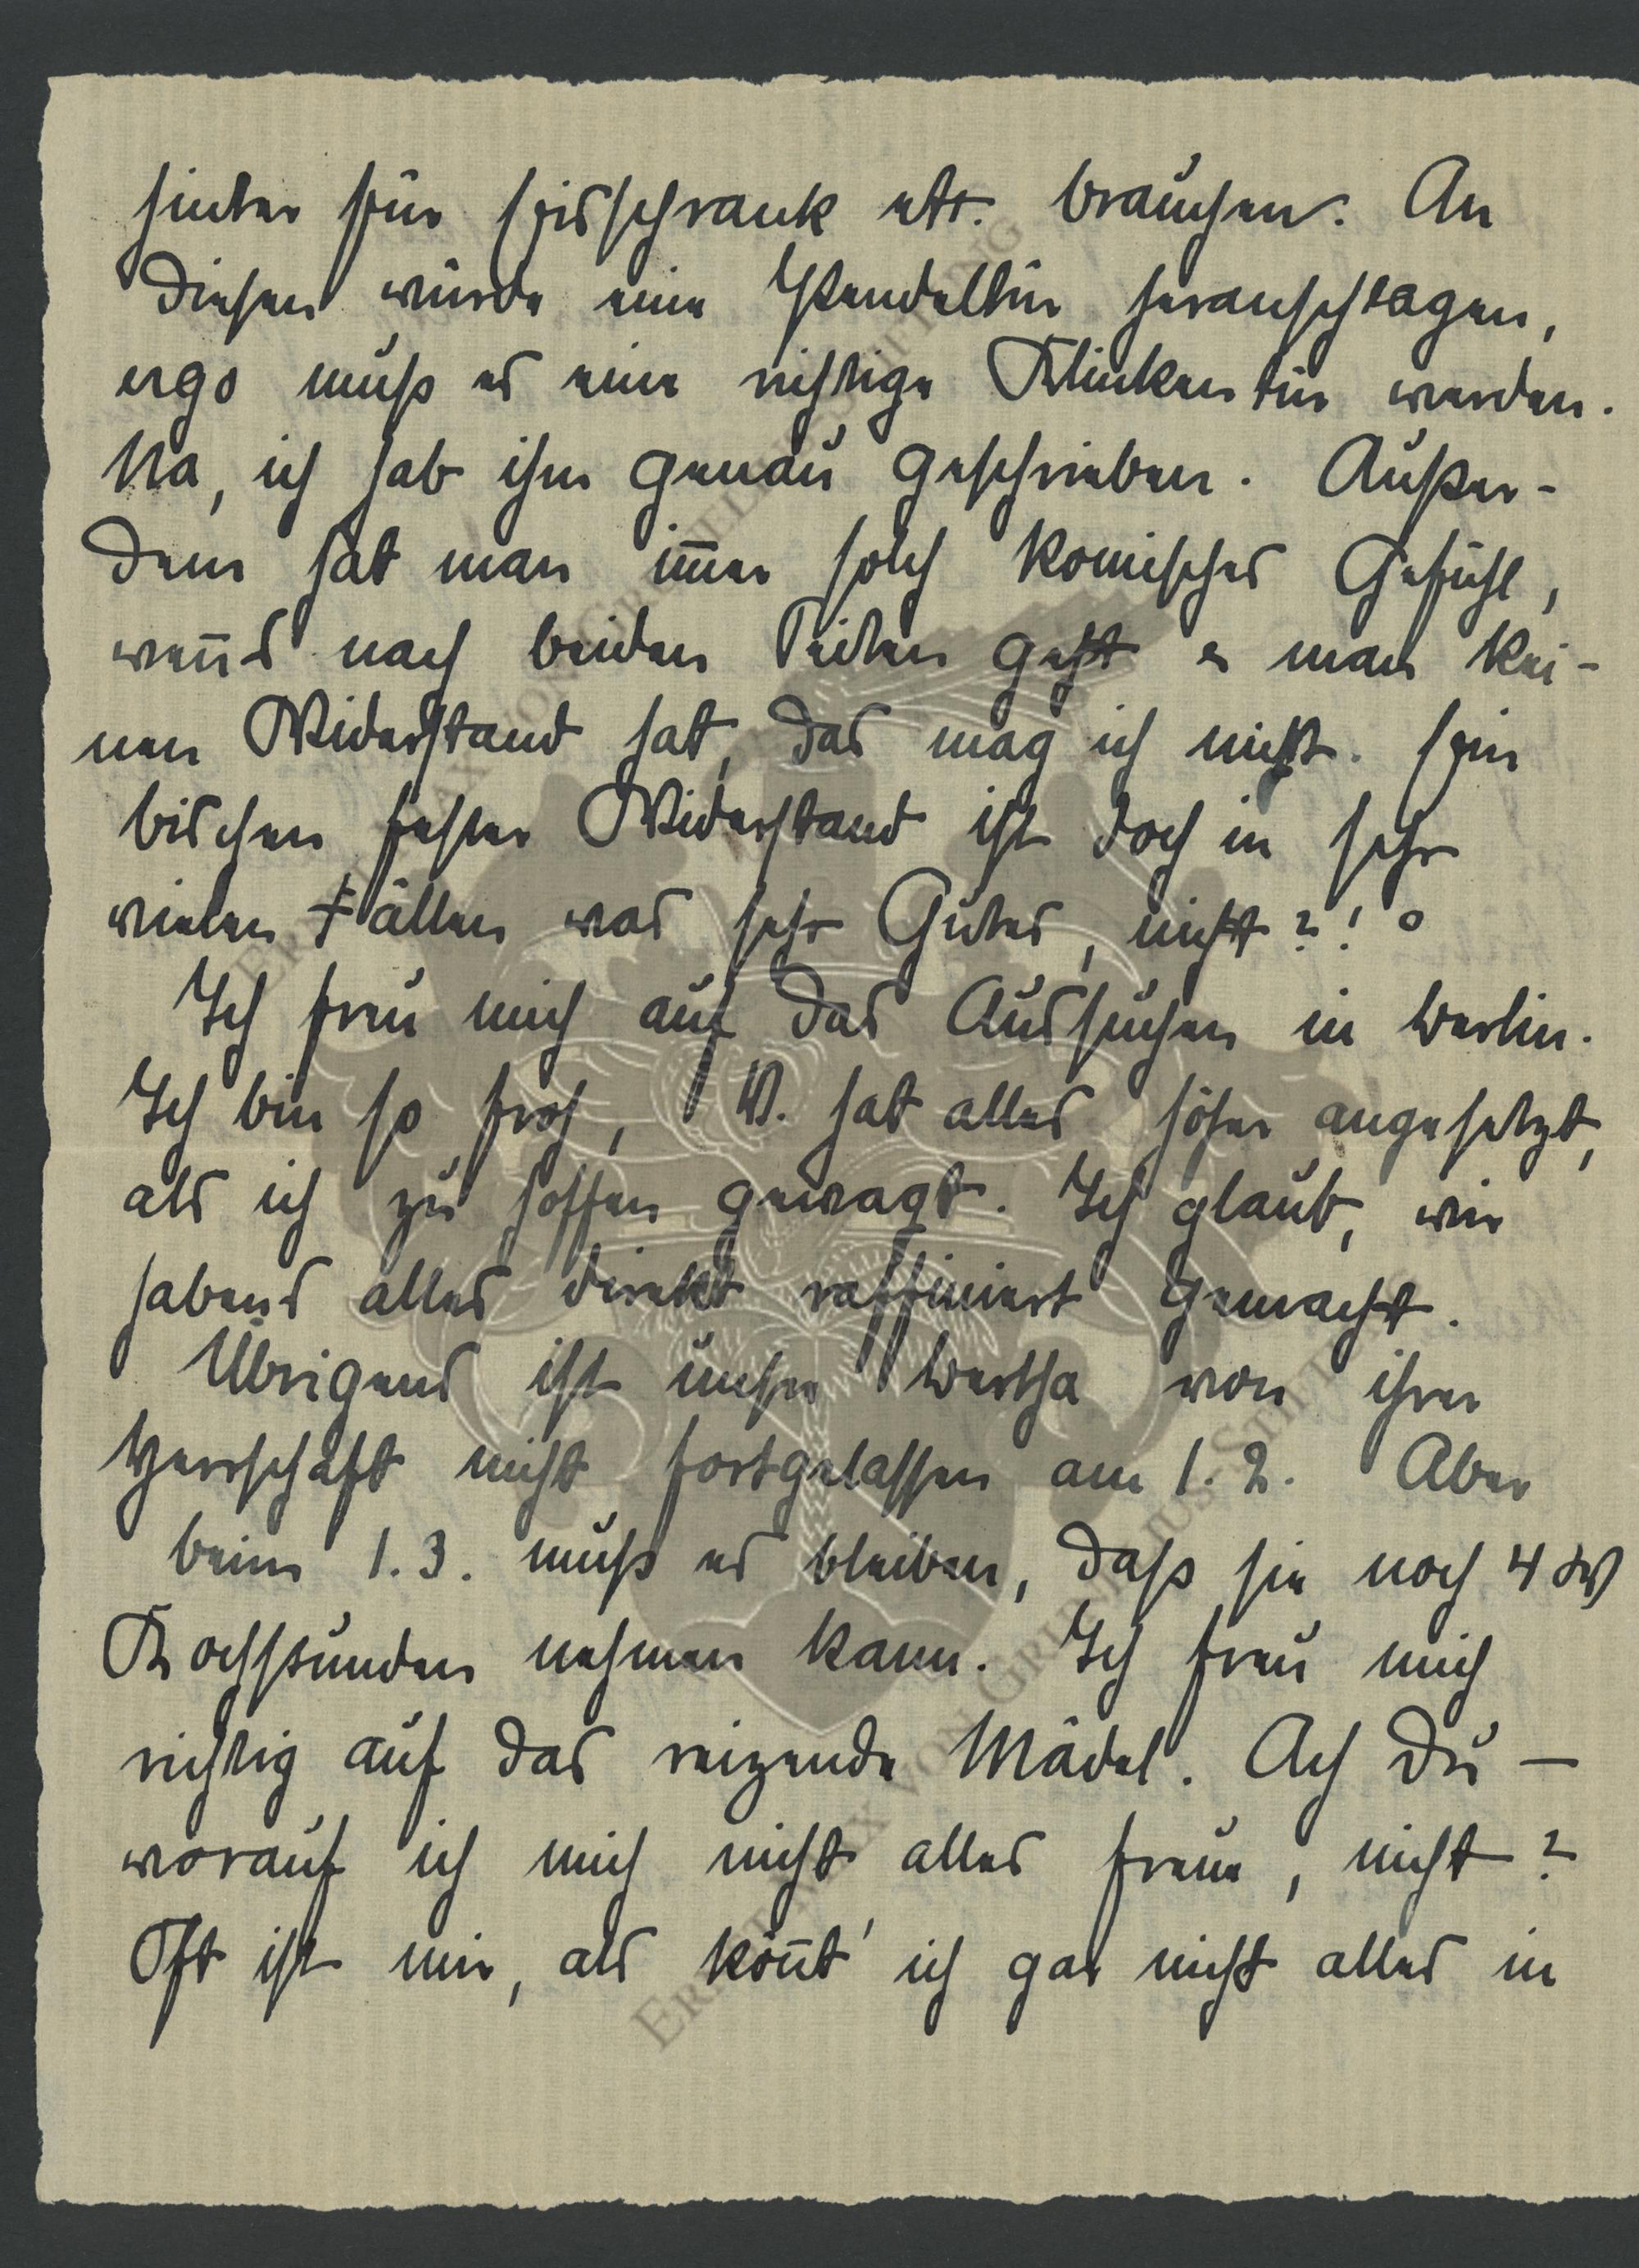 hinter für Eisschrank etc. brauchen. An
diesen würde eine Pendeltür heranschlagen,
ergo muß es eine richtige Klinkentür werden.
Na, ich hab ihm genau geschrieben. Außer-
dem hat man im̅er solch komisches Gefühl,
wen̅s nach beiden Seiten geht u man kei-
nen Widerstand hat, das mag ich nicht. Ein
bischen fester Widerstand ist doch in sehr
vielen Fällen was sehr Gutes, nicht?!
Ich freu mich auf das Aussuchen in Berlin.
Ich bin so froh, V. hat alles höher angesetzt,
als ich zu hoffen gewagt. Ich glaub, wir
habens alles direkt raffiniert gemacht.
Übrigens ist unsre Bertha von ihrer
Herrschaft nicht fortgelassen am 1. 2. Aber
beim 1. 3. muß es bleiben, daß sie noch 4 W
Kochstunden nehmen kann. Ich freu mich
richtig auf das reizende Mädel. Ach Du —
worauf ich mich nicht alles freue, nicht?
Oft ist mir, als kön̅t' ich gar nicht alles in